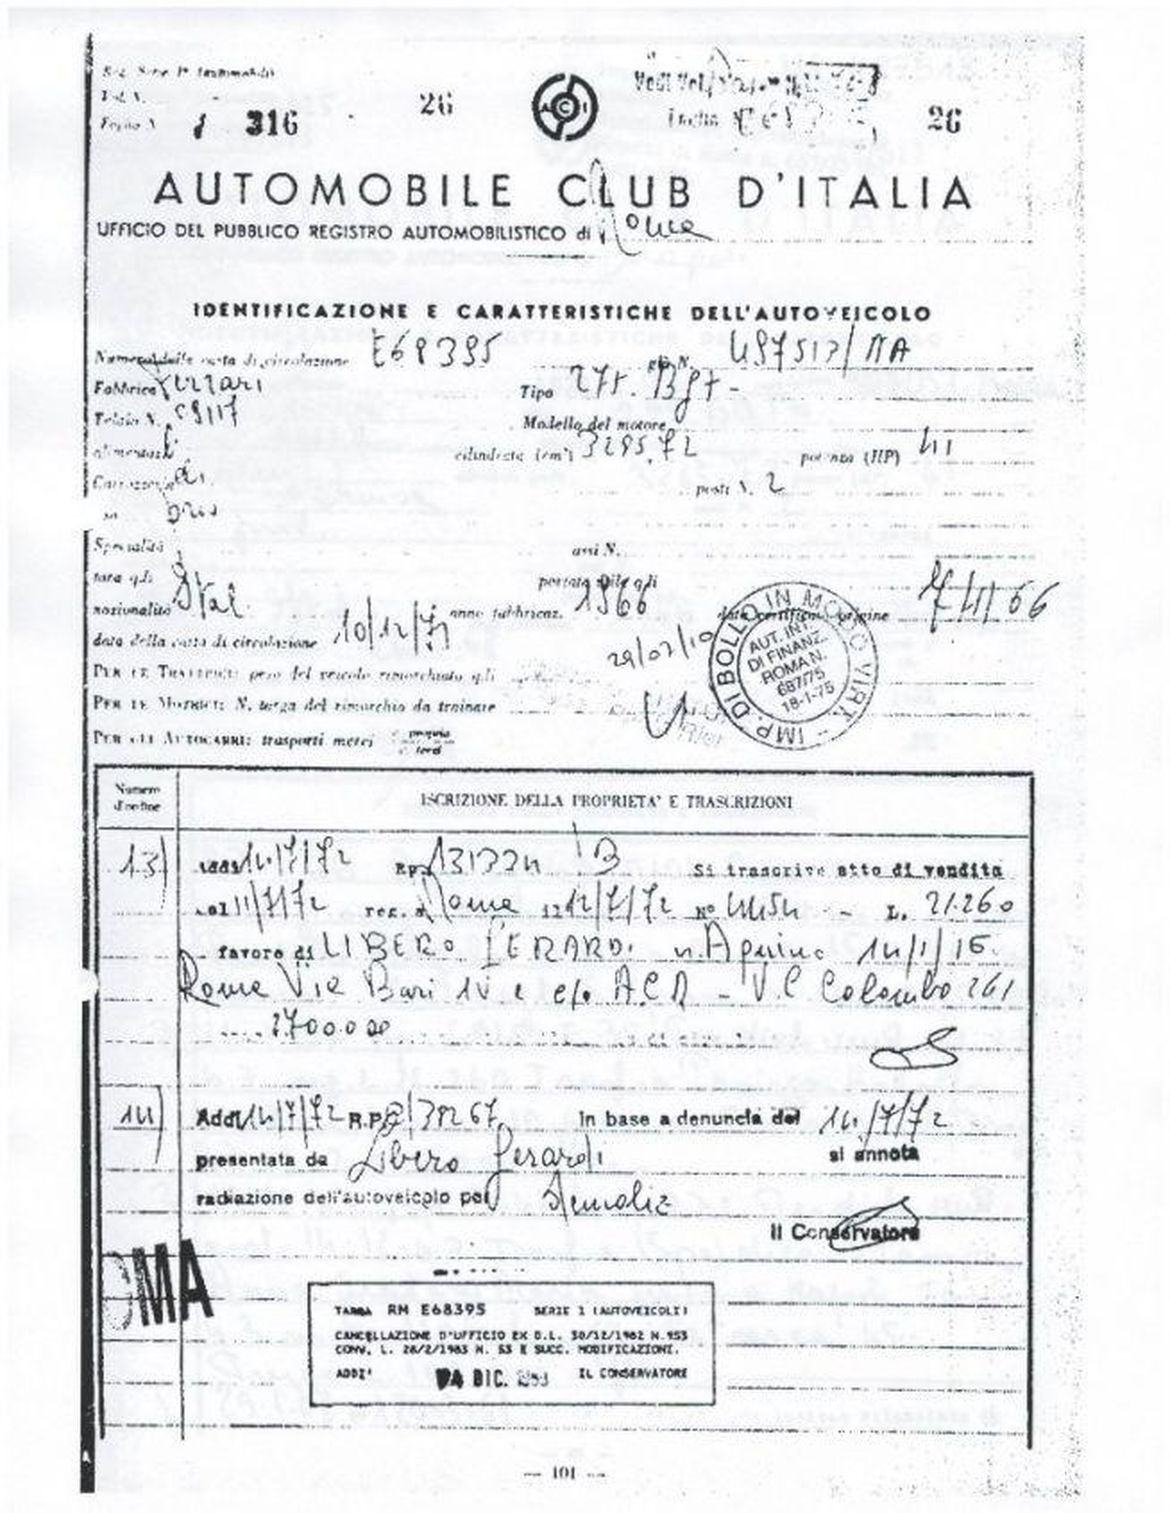 Reg. Serie 1ª (automobili)
Vol. N.
Foglio N. 1 316
26
ACI
Vedi Vol.
26
AUTOMOBILE CLUB D'ITALIA
UFFICIO DEL PUBBLICO REGISTRO AUTOMOBILISTICO di Roma
IDENTIFICAZIONE E CARATTERISTICHE DELL'AUTOVEICOLO
Numero della carta di circolazione E68395 già N. 497513/MA
Fabbrica Ferrari Tipo 275.
Telaio N. 09117 Modello del motore
alimentaz. cilindrata (cm³) 3295,72 potenza (HP) 41
Carrozzeria posti N. 2
Specialità assi N.
tara q.li portata utile q.li
nazionalità Ital. anno fabbricaz. 1966 data certificato origine 7/11/66
data della carta di circolazione 10/12/71
29/07/10
IMP. DI BOLLO IN MODO VIRT.
AUT. INT.
DI FINANZ.
ROMA N.
687/75
18-1-75
PER LE TRATTRICI: peso del veicolo rimorchiato q.li
PER LE MOTRICI: N. targa del rimorchio da trainare
PER GLI AUTOCARRI: trasporti merci proprio terzi
Numero d'ordine
ISCRIZIONE DELLA PROPRIETA' E TRASCRIZIONI
13) Addì 14/7/72 R.P. B Si trascrive atto di vendita
del 11/7/72 reg. a Roma il 12/7/72 N° L. 21.260
a favore di LIBERO GERARDI n. Aquino 14/1/16
Roma Via Bari c/o ACR - V. C Colombo 261
2700000
14) Addì 14/7/72 R.P. B/38267 In base a denuncia del 14/7/72
presentata da Libero Gerardi si annota
radiazione dell'autoveicolo per demoliz
Il Conservatore
OMA
TARGA RM E68395 SERIE 1 (AUTOVEICOLI)
CANCELLAZIONE D'UFFICIO EX D.L. 30/12/1982 N.953
CONV. L. 28/2/1983 N. 53 E SUCC. MODIFICAZIONI.
ADDI' DIC. IL CONSERVATORE
A
— 101 —